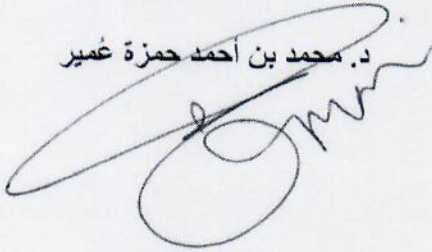 د. محمد بن أحمد حمزة عُمير